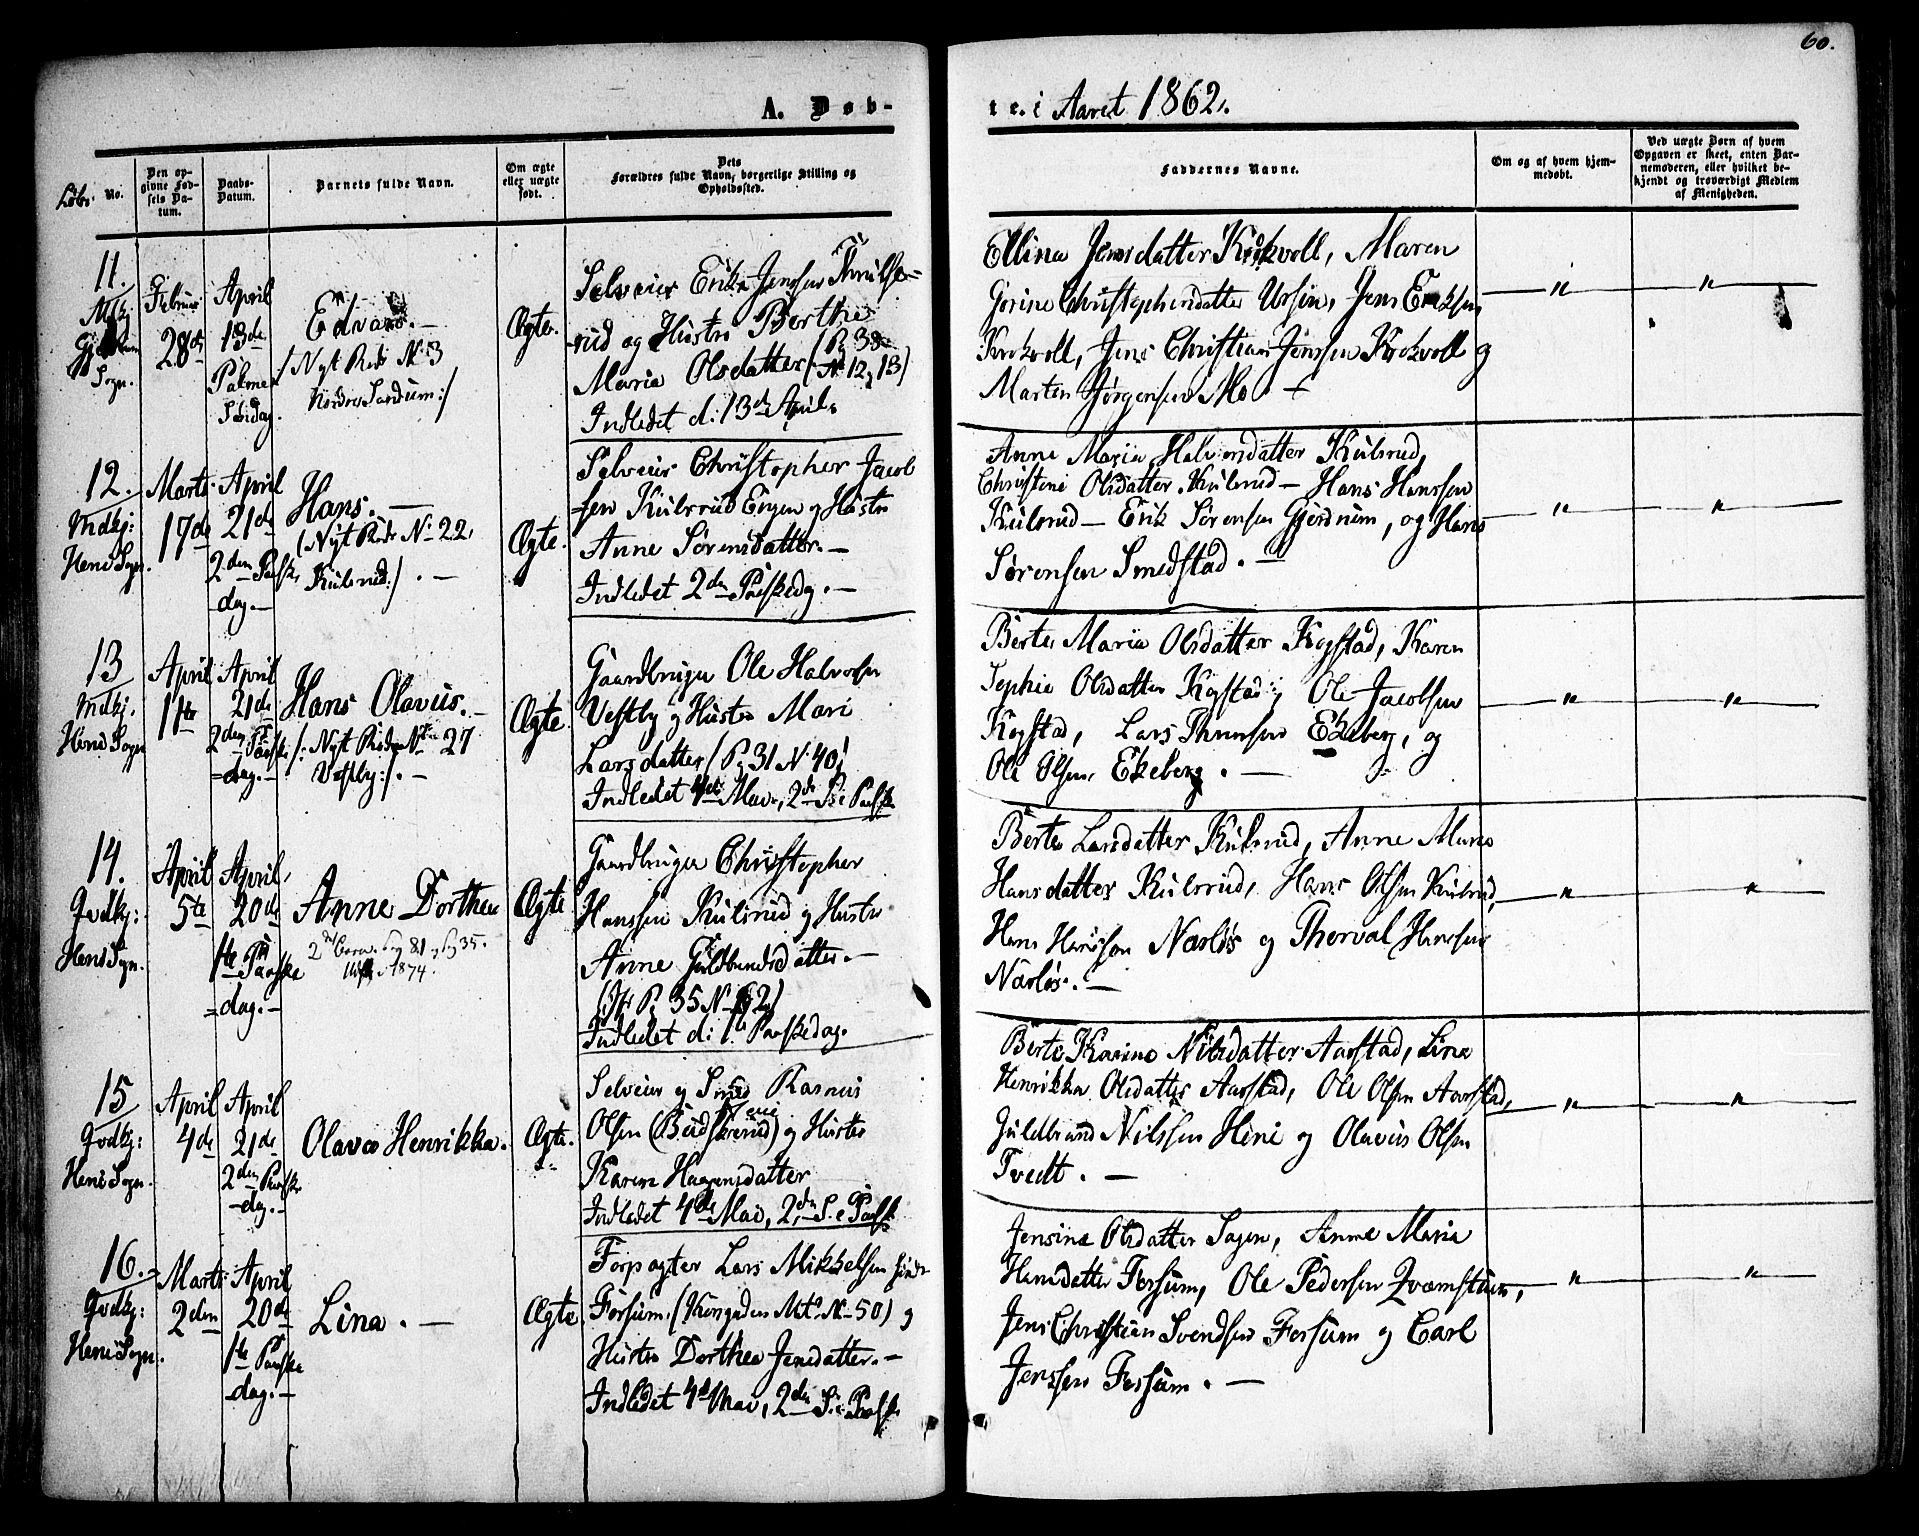 60.
A. Døb-
te i Aaret 1862.
Løbe No.
Den op-
givne Fød-
sels Da-
tum.
Daabs-
Datum.
Barnets fulde Navn.
Om ægte
eller uægte
født.
Dets
Forældres fulde Navn, borgerlige Stilling og
Opholdssted.
Faddernes Navne.
Om og af hvem hjem-
medøbt.
Ved uægte Børn af hvem
Opgaven er skeet, enten Bar-
nemoderen, eller hvilket be-
kjendt og troværdigt Medlem
af Menigheden.
11.
Mdkj:
Sogn.
Februar
28de
April
13de
Palme
Søndag.
Edvard.
(Nyt Reds No 3
Nordre Sandum:/
Ægte.
Selveier Erik Jenssen Thrulse-
rud og Hustro Berthe
Maria Olsdatter (P. 38
No 12, 13)
Indledet d: 13de April
Ellina Jensdatter Krokvoll, Maren
Gorine Christophersdatter Ursin, Jens Eriksen
Krokvoll, Jens Christian Jenssen Krokvoll og
Marten Jørgensen Mo. —
" "
12.
Mdkj:
Hens Sogn.
Marts
17de
April
21de
2den Paaske
dag.
Hans.
(Nyt Reds No 22,
Kulsrud:/. —
Ægte.
Selveier Christopher Jacob
sen Kulsrud Engen og Hustro
Anne Sørensdatter. —
Indledet 2den Paaskedag. —
Anne Maria Halvorsdatter Kulsrud,
Christine Olsdatter Kulsrud — Hans Hanssen
Kulsrud — Erik Sørensen Gjerdrum, og Hans
Sørensen Smedstad. —
" "
13
Mdkj.
Hens Sogn
April
1ste
April
21de
2den Paaske
dag. —
Hans Olavus.
/: Nyt Reds No 27
Vestby:/. —
Ægte.
Gaardbruger Ole Halvorsen
Vestby og Hustro Mari
Larsdatter (P. 31 No 40)
Indledet 4de Mai, 2den S. e Paaske
Berte Maria Olsdatter Kogstad, Karen
Sophie Olsdatter Kogstad, Ole Jacobsen
Kogstad, Lars Ekeberg, og
Ole Olsen Ekeberg. —
" "
14.
Qvdkj:
Hens Sogn.
April
5te
April,
20de
1ste Paaske
dag. —
Anne Dorthea
1874.
Ægte
Gaardbruger Christopher
Hanssen Kulsrud og Hustro
Anne Guldbrandsdatter. —
P. 35 No
Indledet d: 1ste Paaskedag.
Berte Larsdatter Kulsrud, Anne Marie
Hansdatter Kulsrud, Hans Olsen Kulsrud,
Hans Hanssen Narløs og Thorval Hanssen
Narløs. —
" "
15
Qvdkj:
Hens Sogn.
April
4de
April
21de
2den Paaske
dag. —
Olava Henrikka.
Ægte.
Selveier og Smed Rasmus
Olsen (Budskerud) og Hustro
Karen Haagensdatter
Indledet 4de Mai, 2den S. e Paaske
Berte Karine Nilsdatter Aarstad, Line
Henrikka Olsdatter Aarstad, Ole Olsen Aarstad,
Guldbrand Nilssen Hene og Olavus Olsen
Tvedt. —
" "
16.
Qvdkj:
Hens Sogn.
Marts
2den
April
20de
1ste Paaske
dag. —
Lina. —
Ægte.
Forpagter Lars Mikkelsen
Forsum. (Kongsden Mt. No 50) og
Hustro Dorthea Jensdatter. —
Indledet 4de Mai, 2den S. e Paaske
Jensine Olsdatter Sagen, Anne Maria
Hansdatter Forsum, Ole Pedersen Qvæmstuen,
Jens Christian Svendsen Forsum og Carl
Jenssen Forsum. —
" "